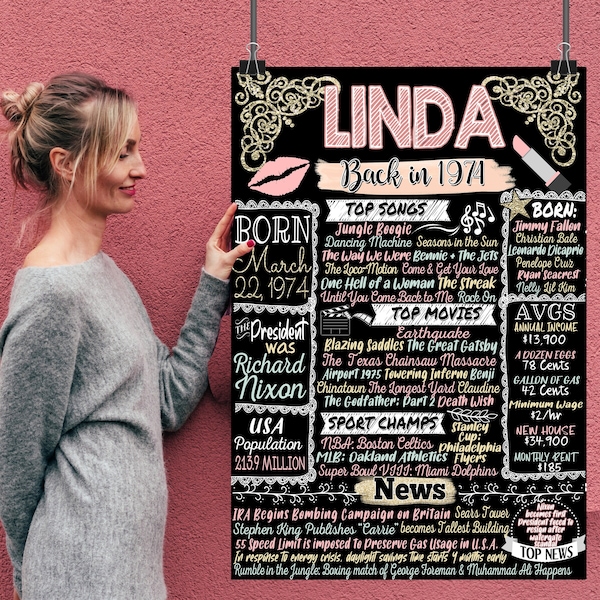 LINDA
Back in 1974
BORN
March
22, 1974
THE President
was
Richard
Nixon
USA
Population
213.9 MILLION
TOP SONGS
Jungle Boogie
Dancing Machine Seasons in the Sun
The Way We Were Bennie + The Jets
The Loco-Motion Come & Get Your Love
One Hell of a Woman The Streak
Until You Come Back to Me Rock On
TOP MOVIES
Earthquake
Blazing Saddles The Great Gatsby
The Texas Chainsaw Massacre
Airport 1975 Towering Inferno Benji
Chinatown The Longest Yard Claudine
The Godfather: Part 2 Death Wish
SPORT CHAMPS
NBA: Boston Celtics
MLB: Oakland Athletics
Stanley
Cup:
Philadelphia
Flyers
Super Bowl VIII: Miami Dolphins
BORN:
Jimmy Fallon
Christian Bale
Leonardo Dicaprio
Penelope Cruz
Ryan Seacrest
Nelly Lil Kim
AVGS
ANNUAL INCOME
$13,900
A DOZEN EGGS
78 Cents
GALLON OF GAS
42 Cents
Minimum Wage
$2/hr
NEW HOUSE
$34,900
MONTHLY RENT
$185
News
IRA Begins Bombing Campaign on Britain Sears Tower
Stephen King Publishes "Carrie" becomes Tallest Building
55 Speed Limit is imposed to Preserve Gas Usage in U.S.A.
In response to energy crisis, daylight savings time starts 4 months early
Rumble in the Jungle: Boxing match of George Foreman & Muhammad Ali Happens
Nixon
becomes first
President forced to
resign after
watergate
scandal
TOP NEWS